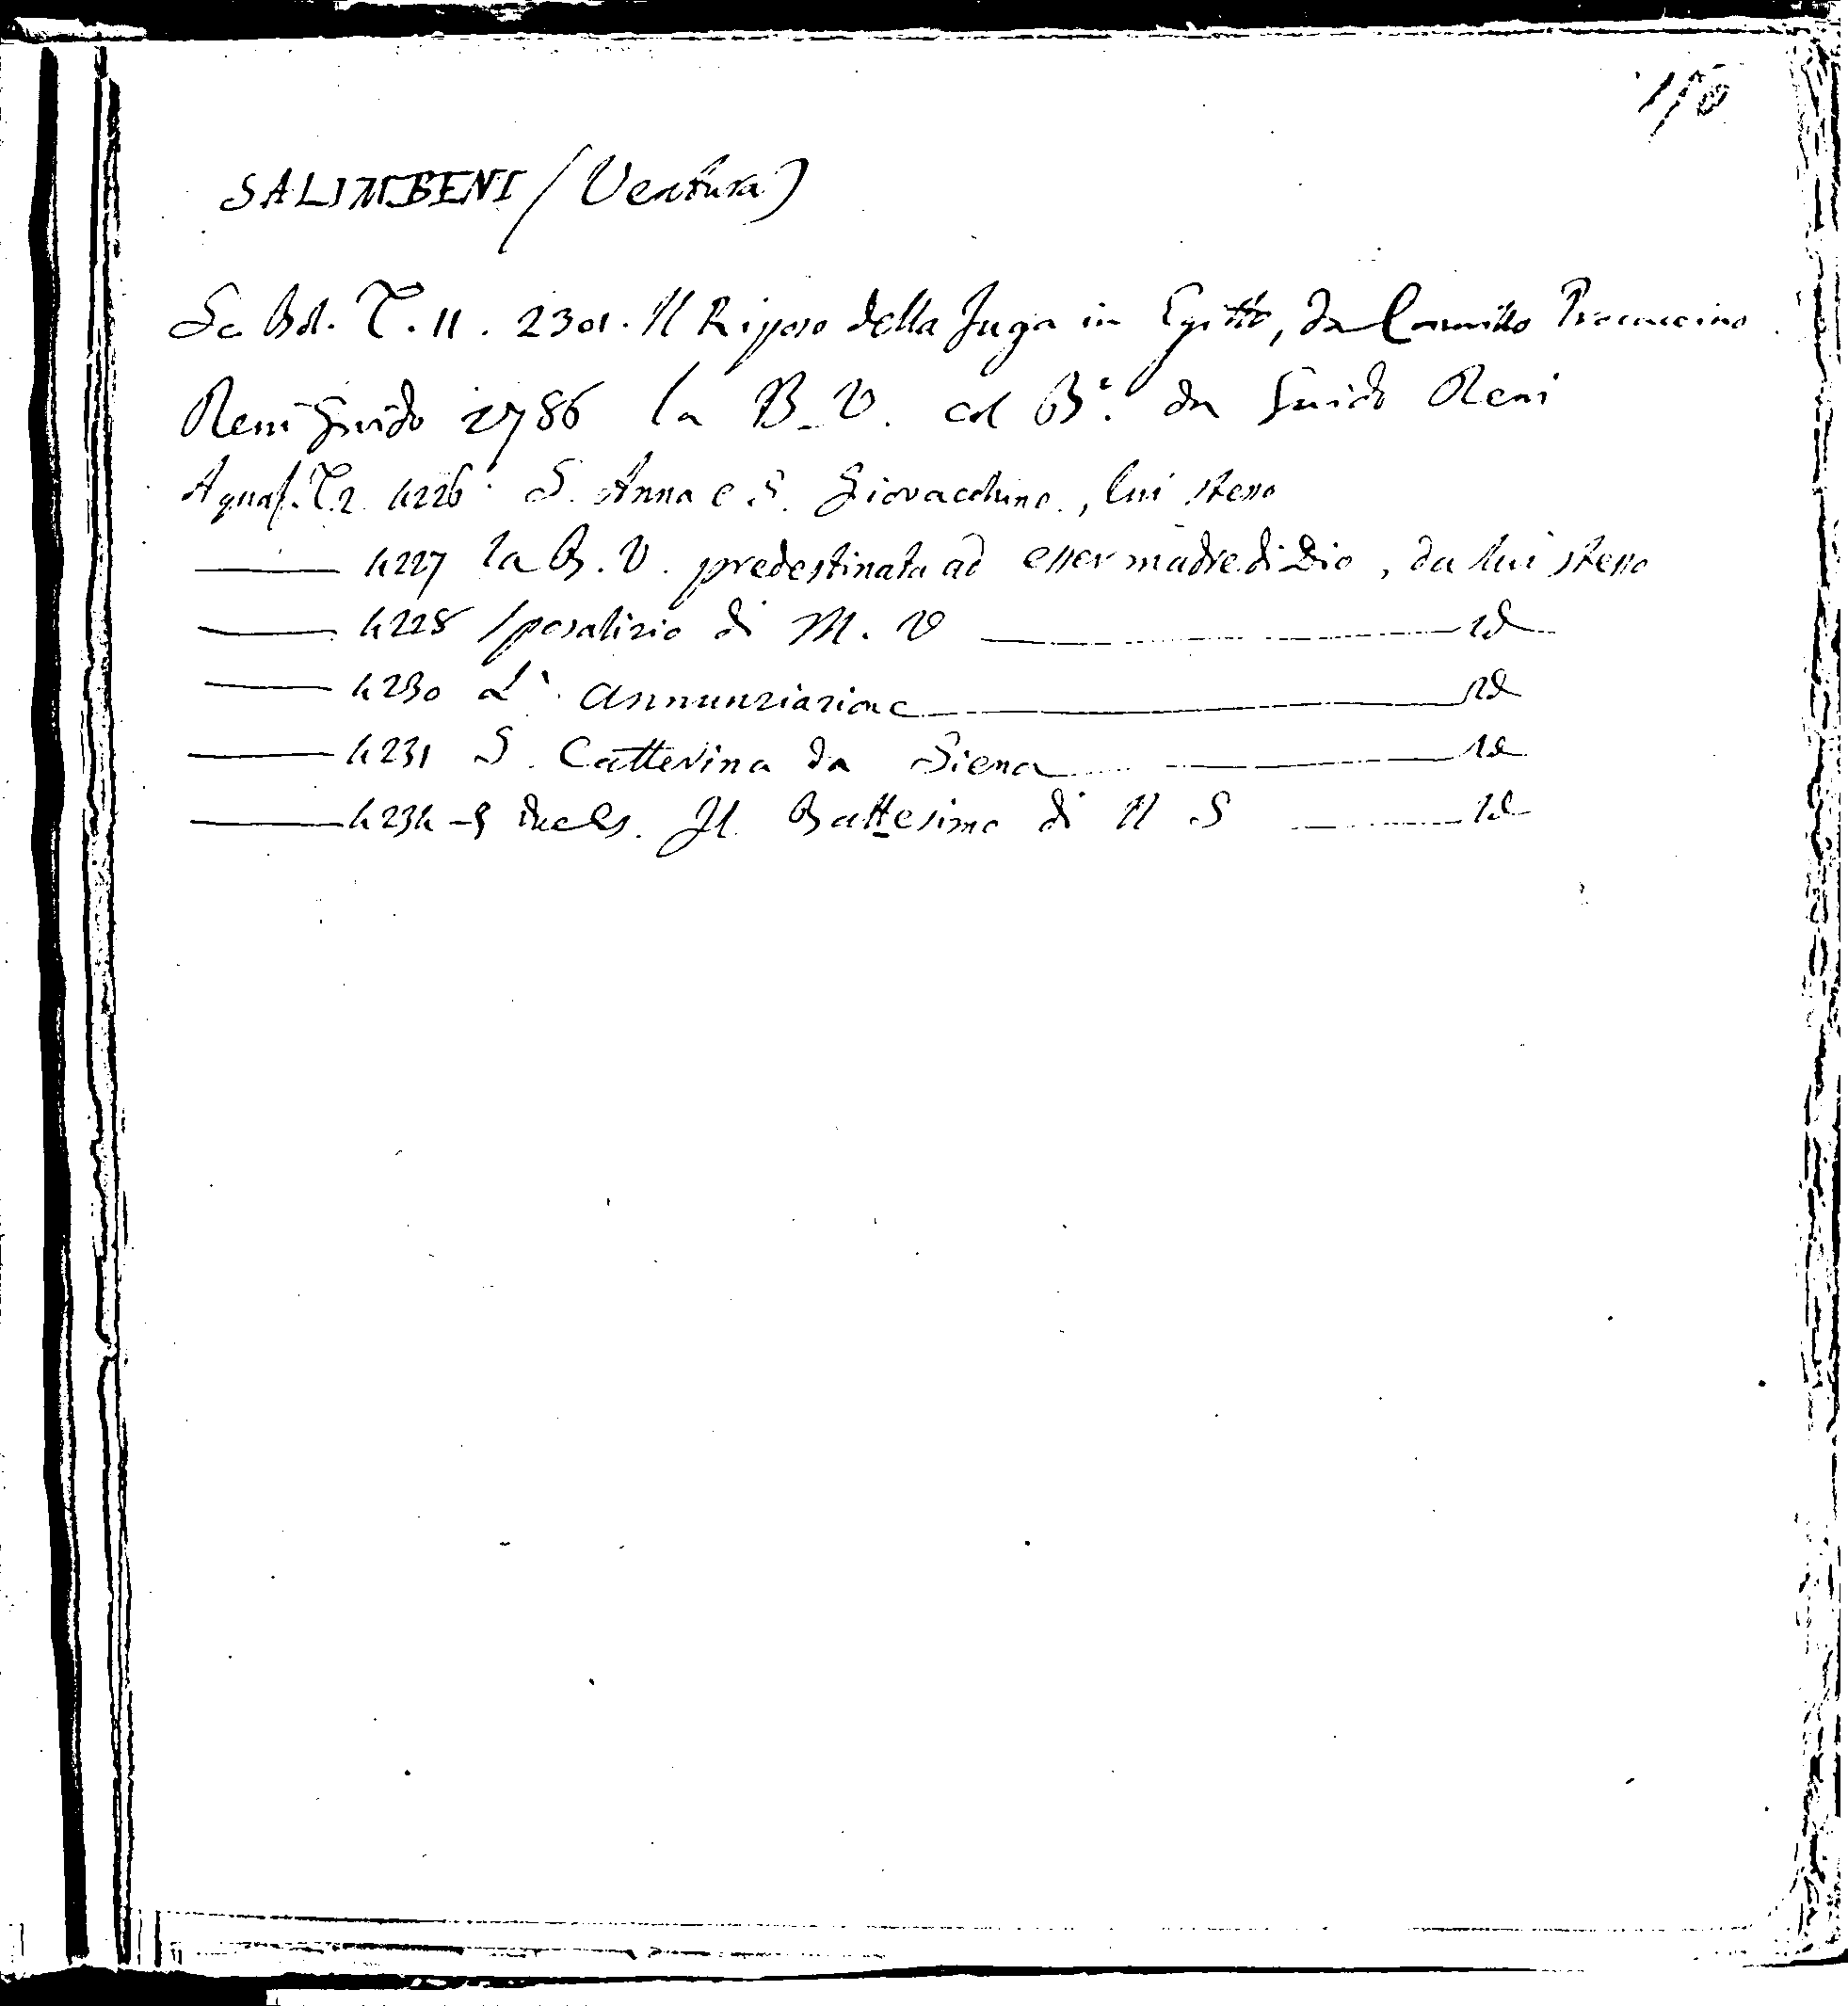 170
SALIMBENI (Ventura)
Sc Bol. T. II. 2301. Il Riposo della Fuga in Egitto, da Camillo Procaccino.
Reni Guido 2786 la B. V. col B.º da Guido Reni
Aquaf. T.2. 4226 S. Anna e S. Giovacchino, lui stesso
—— 4227 la B. V. predestinata ad esser madre di Dio, da lui stesso
—— 4228 Sposalizio di M. V —— id
—— 4230 L' annunziazione —— id
—— 4231 S. Catterina da Siena —— id
—— 4234-5 due Es. Il Battesimo di N S —— id